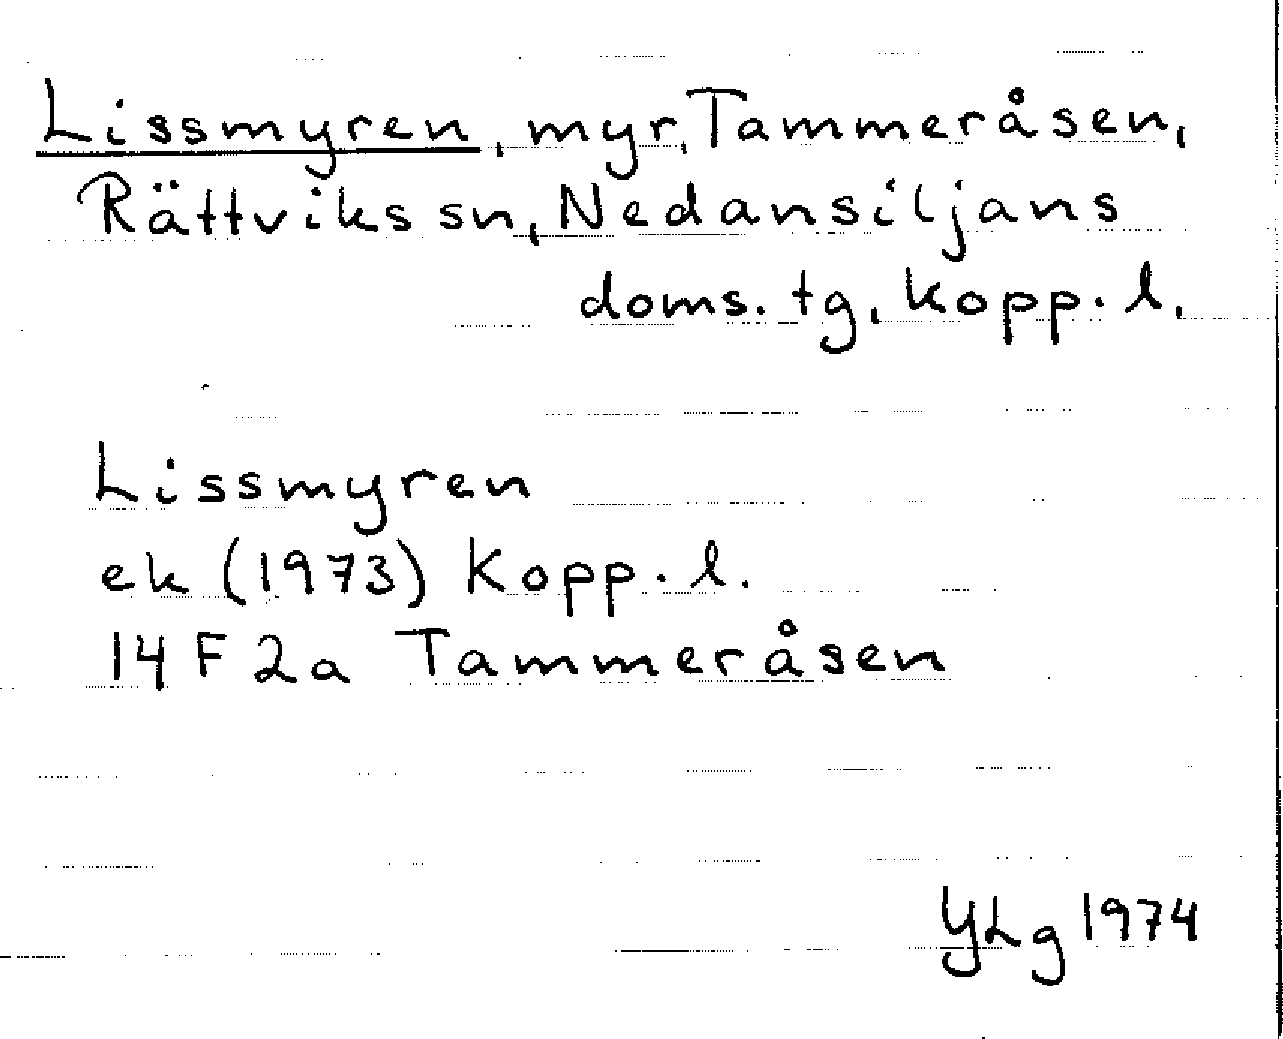 Lissmyren, myr, Tammeråsen,
Rättviks sn, Nedansiljans
doms. tg, Kopp. l.
Lissmyren
ek (1973) Kopp. l.
14 F 2a Tammeråsen
YLg 1974